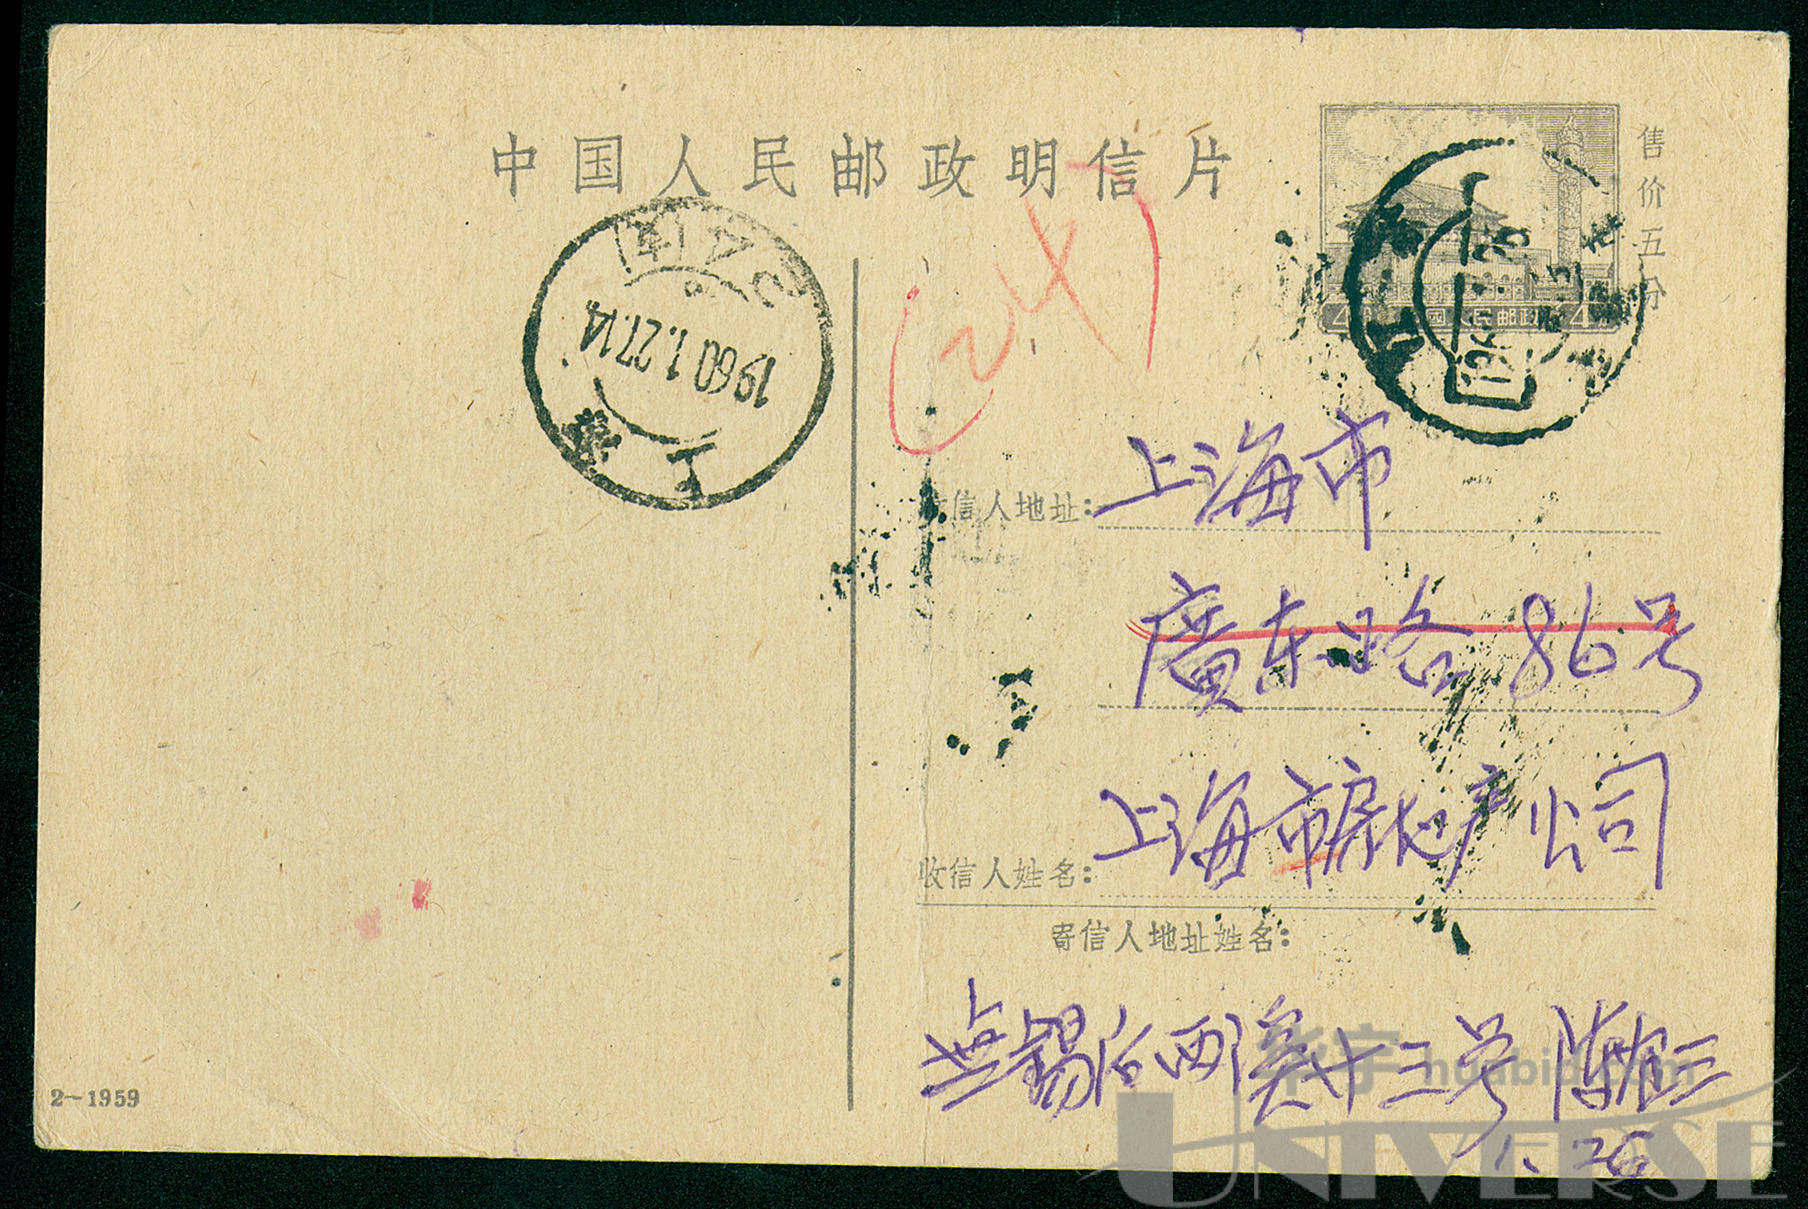 中国人民邮政明信片
售价五分
4 中国人民邮政 4
上海
1960.1.27.14
信人地址:
上海市
廣东路 86号
收信人姓名:
上海市房地产公司
寄信人地址姓名:
無錫后西溪十三号 陳
1.26
2-1959
华宇 huabid.com
UNIVERSE